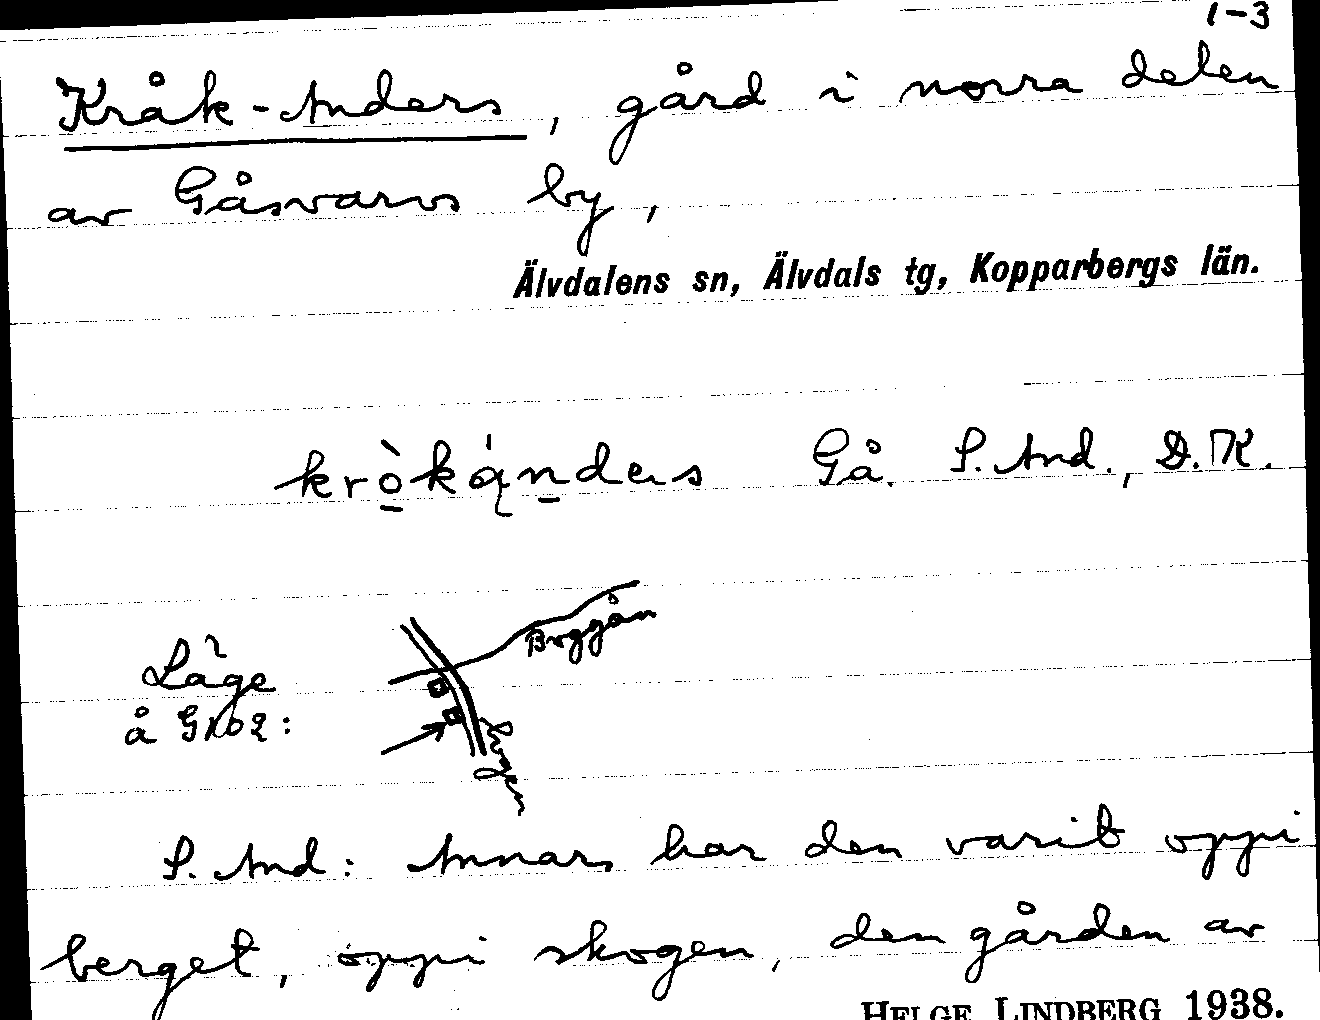 1-3
Kråk-Anders, gård i norra delen
av Gåsvarvs by,
Älvdalens sn, Älvdals tg, Kopparbergs län.
Gå. S. And., D. K.
Läge
å
S. And: Annars har den varit oppi
berget, oppi skogen, den gården av
HELGE LINDBERG 1938.